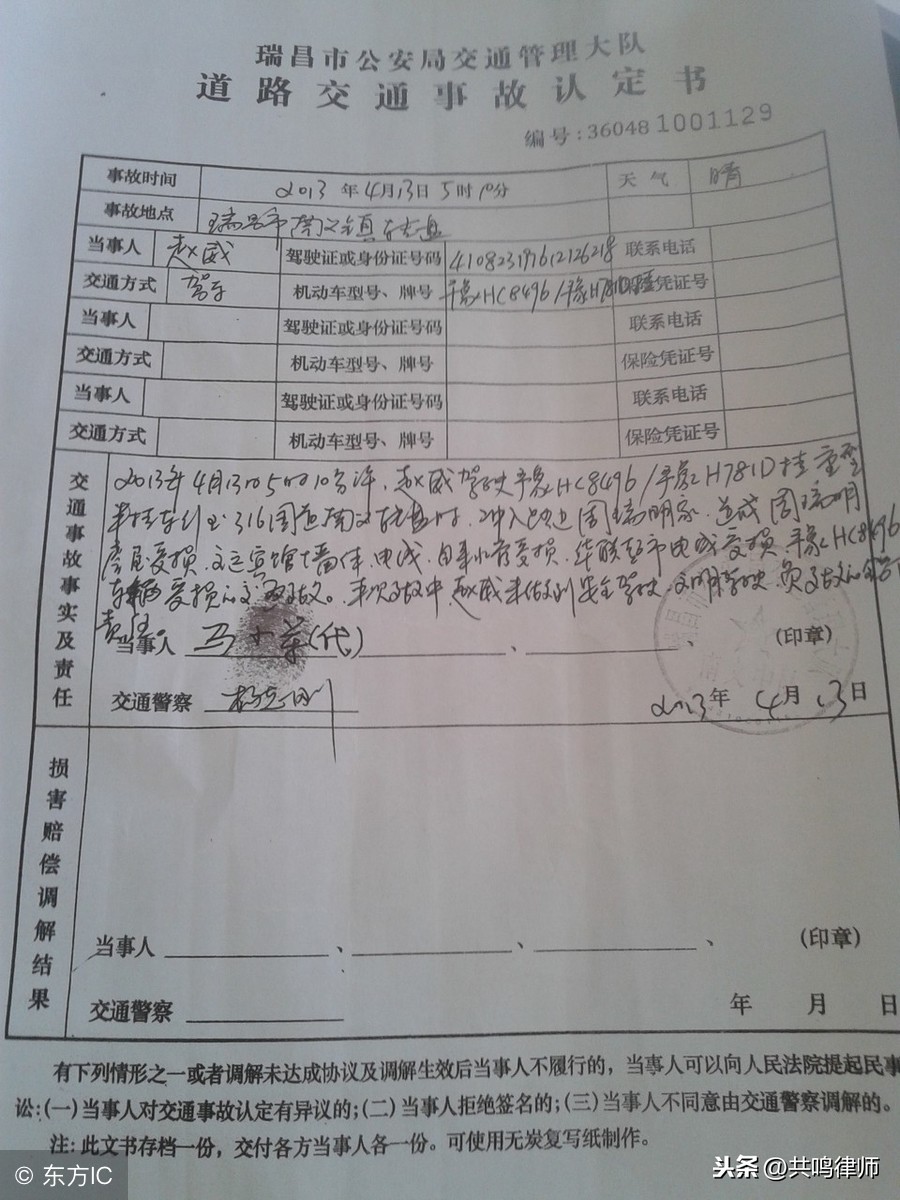 瑞昌市公安局交通管理大队
道路交通事故认定书
编号:360481001129
事故时间 2013年4月13日5时10分 天气 晴
事故地点 瑞昌市南义镇转盘
当事人 赵威 驾驶证或身份证号码 联系电话
交通方式 驾车 机动车型号、牌号 豫HC8496/豫H781D挂 保险凭证号
当事人 驾驶证或身份证号码 联系电话
交通方式 机动车型号、牌号 保险凭证号
当事人 驾驶证或身份证号码 联系电话
交通方式 机动车型号、牌号 保险凭证号
交通事故事实及责任
2013年4月13日5时10分许,赵威驾驶豫HC8496/豫H781D挂重型
半挂车行至316国道南义转盘时,冲入路边周瑞明家,造成周瑞明
房屋受损,文运宾馆墙体、电线、自来水管受损,华联超市电线受损,豫HC8496
车辆受损的交通事故。本次事故中,赵威未做到安全驾驶、文明驾驶,负事故的全部
责任
当事人 马 荣(代) 、 、 (印章)
交通警察 2013年4月13日
损害赔偿调解结果
当事人 、 、 、 (印章)
交通警察 年 月 日
有下列情形之一或者调解未达成协议及调解生效后当事人不履行的,当事人可以向人民法院提起民事
讼:(一)当事人对交通事故认定有异议的;(二)当事人拒绝签名的;(三)当事人不同意由交通警察调解的。
注:此文书存档一份,交付各方当事人各一份。可使用无炭复写纸制作。
© 东方IC
头条@共鸣律师